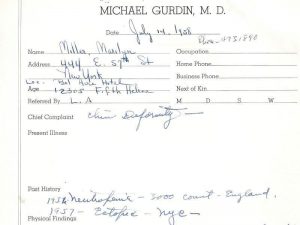 MICHAEL GURDIN, M. D.
Date July 14, 1958
Phone - 4731890
Name Miller, Marilyn Occupation
Address 444 E. 57th St Home Phone
New York Business Phone
Loc. Bel Hotel
Age 12305 Fifth Helena Next of Kin
Referred By L. A M D S W
Chief Complaint chin Deformity
Present Illness
Past History
1956 Neutropenia - 3000 count - England.
1957 - Ectopic - NYC -
Physical Findings